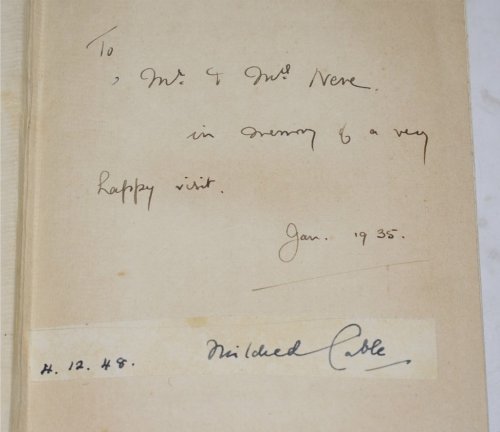 To
Mr. & Mrs Neve.
in memory of a very
happy visit.
Jan. 1935.
4.12.48. Mildred Cable